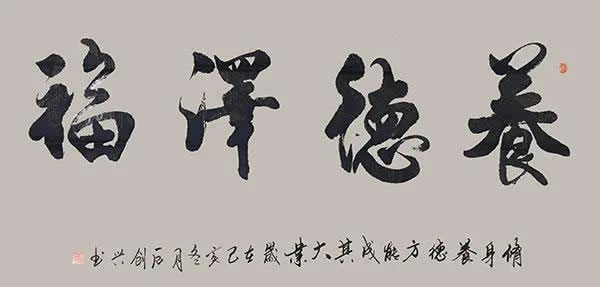 養德澤福
脩身養德方能成其大業歲在己亥冬月石創興书